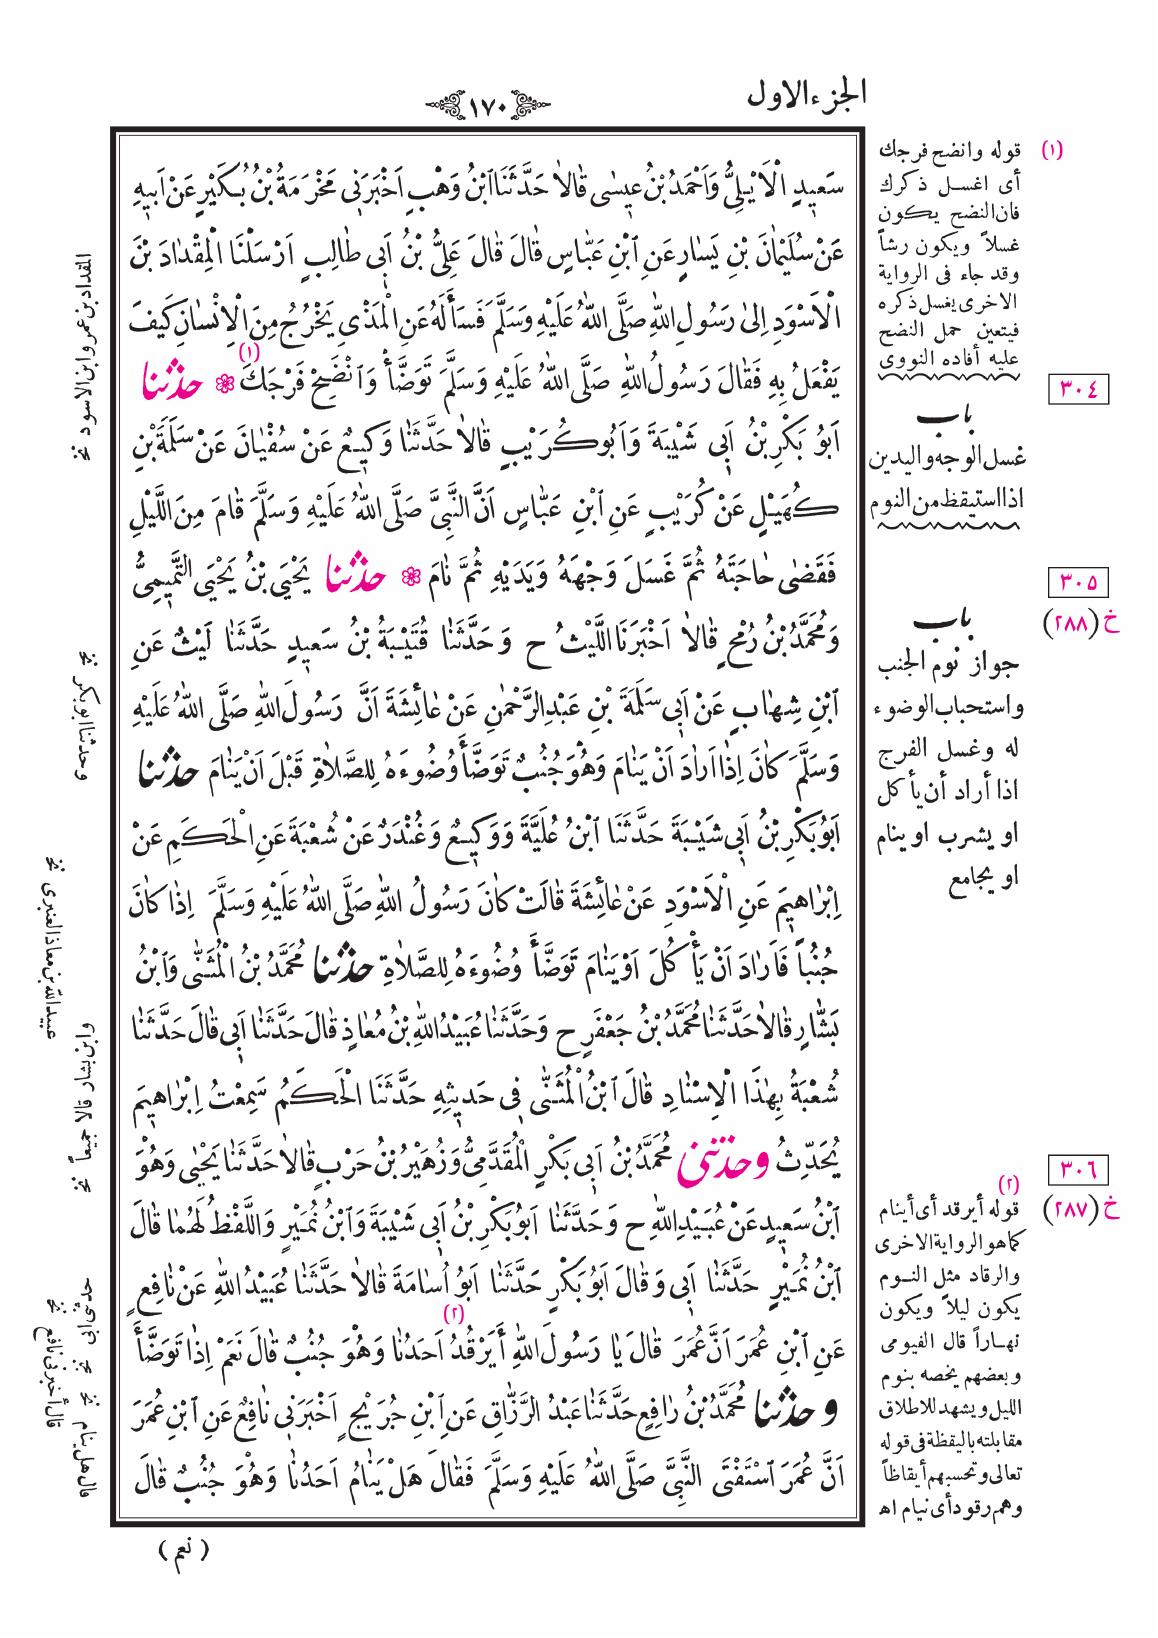 الجزء الاول
١٧٠
سَعِيدٍ الْاَيْلِيُّ وَاَحْمَدُ بْنُ عِيسٰى قَالَا حَدَّثَنَا ابْنُ وَهْبٍ اَخْبَرَنِى مَخْرَمَةُ بْنُ بُكَيْرٍ عَنْ اَبِيهِ
عَنْ سُلَيْمَانَ بْنِ يَسَارٍ عَنِ ابْنِ عَبَّاسٍ قَالَ قَالَ عَلِىُّ بْنُ اَبِى طَالِبٍ اَرْسَلْنَا الْمِقْدَادَ بْنَ
الْاَسْوَدِ اِلٰى رَسُولِ اللهِ صَلَّى اللهُ عَلَيْهِ وَسَلَّمَ فَسَأَلَهُ عَنِ الْمَذْىِ يَخْرُجُ مِنَ الْاِنْسَانِ كَيْفَ
يَفْعَلُ بِهِ فَقَالَ رَسُولُ اللهِ صَلَّى اللهُ عَلَيْهِ وَسَلَّمَ تَوَضَّأْ وَانْضِحْ فَرْجَكَ (١) حدثنا
اَبُو بَكْرِ بْنُ اَبِى شَيْبَةَ وَاَبُو كُرَيْبٍ قَالَا حَدَّثَنَا وَكِيعٌ عَنْ سُفْيَانَ عَنْ سَلَمَةَ بْنِ
كُهَيْلٍ عَنْ كُرَيْبٍ عَنِ ابْنِ عَبَّاسٍ اَنَّ النَّبِىَّ صَلَّى اللهُ عَلَيْهِ وَسَلَّمَ قَامَ مِنَ اللَّيْلِ
فَقَضٰى حَاجَتَهُ ثُمَّ غَسَلَ وَجْهَهُ وَيَدَيْهِ ثُمَّ نَامَ حدثنا يَحْيَى بْنُ يَحْيَى التَّمِيمِىُّ
وَمُحَمَّدُ بْنُ رُمْحٍ قَالَا اَخْبَرَنَا اللَّيْثُ ح وَحَدَّثَنَا قُتَيْبَةُ بْنُ سَعِيدٍ حَدَّثَنَا لَيْثٌ عَنِ
ابْنِ شِهَابٍ عَنْ اَبِى سَلَمَةَ بْنِ عَبْدِ الرَّحْمٰنِ عَنْ عَائِشَةَ اَنَّ رَسُولَ اللهِ صَلَّى اللهُ عَلَيْهِ
وَسَلَّمَ كَانَ اِذَا اَرَادَ اَنْ يَنَامَ وَهُوَ جُنُبٌ تَوَضَّأَ وُضُوءَهُ لِلصَّلَاةِ قَبْلَ اَنْ يَنَامَ حدثنا
اَبُو بَكْرِ بْنُ اَبِى شَيْبَةَ حَدَّثَنَا ابْنُ عُلَيَّةَ وَوَكِيعٌ وَغُنْدَرٌ عَنْ شُعْبَةَ عَنِ الْحَكَمِ عَنْ
اِبْرَاهِيمَ عَنِ الْاَسْوَدِ عَنْ عَائِشَةَ قَالَتْ كَانَ رَسُولُ اللهِ صَلَّى اللهُ عَلَيْهِ وَسَلَّمَ اِذَا كَانَ
جُنُباً فَاَرَادَ اَنْ يَأْكُلَ اَوْ يَنَامَ تَوَضَّأَ وُضُوءَهُ لِلصَّلَاةِ حدثنا مُحَمَّدُ بْنُ الْمُثَنّٰى وَابْنُ
بَشَّارٍ قَالَا حَدَّثَنَا مُحَمَّدُ بْنُ جَعْفَرٍ ح وَحَدَّثَنَا عُبَيْدُ اللهِ بْنُ مُعَاذٍ قَالَ حَدَّثَنَا اَبِى قَالَ حَدَّثَنَا
شُعْبَةُ بِهٰذَا الْاِسْنَادِ قَالَ ابْنُ الْمُثَنّٰى فِى حَدِيثِهِ حَدَّثَنَا الْحَكَمُ سَمِعْتُ اِبْرَاهِيمَ
يُحَدِّثُ وحدثنى مُحَمَّدُ بْنُ اَبِى بَكْرٍ الْمُقَدَّمِىُّ وَزُهَيْرُ بْنُ حَرْبٍ قَالَا حَدَّثَنَا يَحْيٰى وَهُوَ
ابْنُ سَعِيدٍ عَنْ عُبَيْدِ اللهِ ح وَحَدَّثَنَا اَبُو بَكْرِ بْنُ اَبِى شَيْبَةَ وَابْنُ نُمَيْرٍ وَاللَّفْظُ لَهُمَا قَالَ
ابْنُ نُمَيْرٍ حَدَّثَنَا اَبِى وَقَالَ اَبُو بَكْرٍ حَدَّثَنَا اَبُو اُسَامَةَ قَالَا حَدَّثَنَا عُبَيْدُ اللهِ عَنْ نَافِعٍ
عَنِ ابْنِ عُمَرَ اَنَّ عُمَرَ قَالَ يَا رَسُولَ اللهِ أَيَرْقُدُ (٢) اَحَدُنَا وَهُوَ جُنُبٌ قَالَ نَعَمْ اِذَا تَوَضَّأَ
وحدثنا مُحَمَّدُ بْنُ رَافِعٍ حَدَّثَنَا عَبْدُ الرَّزَّاقِ عَنِ ابْنِ جُرَيْجٍ اَخْبَرَنِى نَافِعٌ عَنِ ابْنِ عُمَرَ
اَنَّ عُمَرَ اسْتَفْتَى النَّبِىَّ صَلَّى اللهُ عَلَيْهِ وَسَلَّمَ فَقَالَ هَلْ يَنَامُ اَحَدُنَا وَهُوَ جُنُبٌ قَالَ
( نعم )
(١) قوله وانضح فرجك
أى اغسل ذكرك
فان النضح يكون
غسلاً ويكون رشاً
وقد جاء فى الرواية
الاخرى يغسل ذكره
فيتعين حمل النضح
عليه أفاده النووى
٣٠٤
باب
غسل الوجه واليدين
اذا استيقظ من النوم
٣٠٥
خ (٢٨٨)
باب
جواز نوم الجنب
واستحباب الوضوء
له وغسل الفرج
اذا أراد أن يأكل
او يشرب او ينام
او يجامع
٣٠٦
خ (٢٨٧)
(٢)
قوله أيرقد أى أينام
كما هو الرواية الاخرى
والرقاد مثل النوم
يكون ليلاً ويكون
نهاراً قال الفيومى
وبعضهم يخصه بنوم
الليل ويشهد للاطلاق
مقابلته باليقظة فى قوله
تعالى وتحسبهم أيقاظاً
وهم رقود أى نيام اه
المقداد بن عمرو ابن الاسود نخ
وحدثنا ابو بكر نخ
عبيدالله بن معاذ العنبرى نخ
وابن بشار قالا جميعاً نخ
حدثنى ابى نخ
قال أخبرنى نافع نخ
قال هل ينام نخ